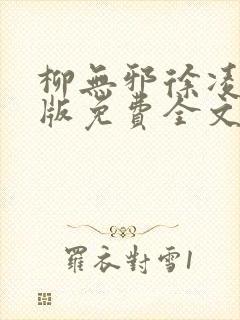 柳無邪徐凌
版免費全文
羅衣對雪1